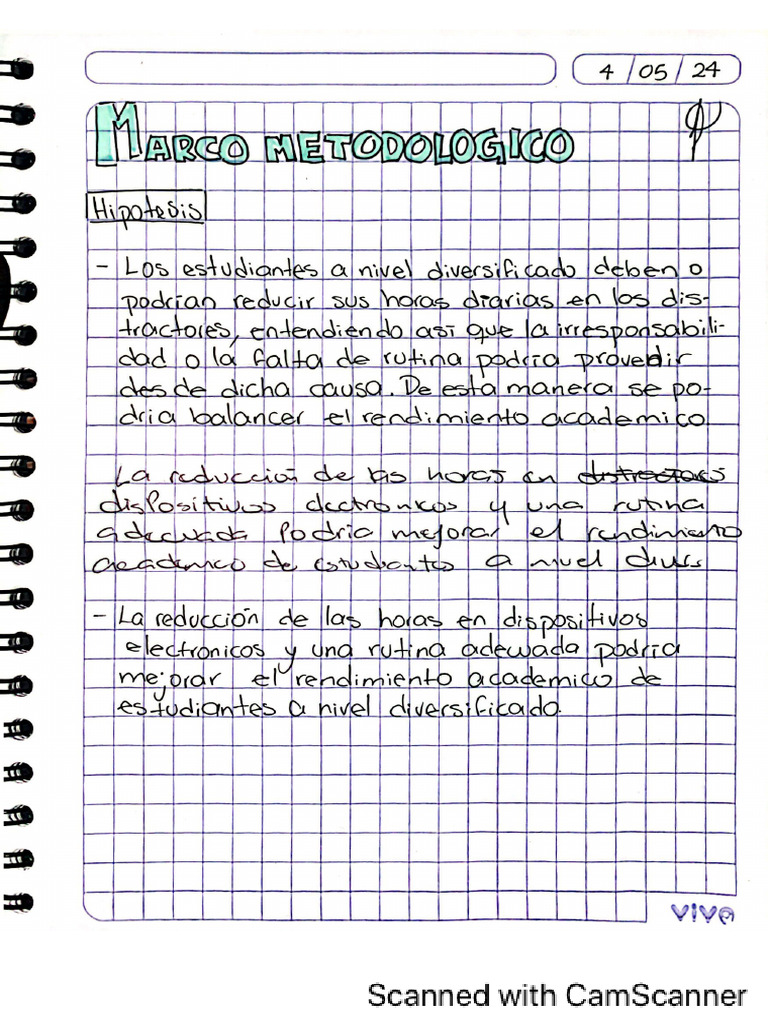 4 / 05 / 24
MARCO METODOLOGICO
Hipotesis
- Los estudiantes a nivel diversificado deben o
podrian reducir sus horas diarias en los dis-
tractores, entendiendo asi que la irresponsabili-
dad o la falta de rutina podria provedir
desde dicha causa. De esta manera se po-
dria balancer el rendimiento academico
La reducción de las horas en distractores
dispositivos electronicos y una rutina
adecuada podria mejorar el rendimiento
academico de estudiantes a nivel divers
- La reducción de las horas en dispositivos
electronicos y una rutina adecuada podria
mejorar el rendimiento academico de
estudiantes a nivel diversificado.
VIVA
Scanned with CamScanner